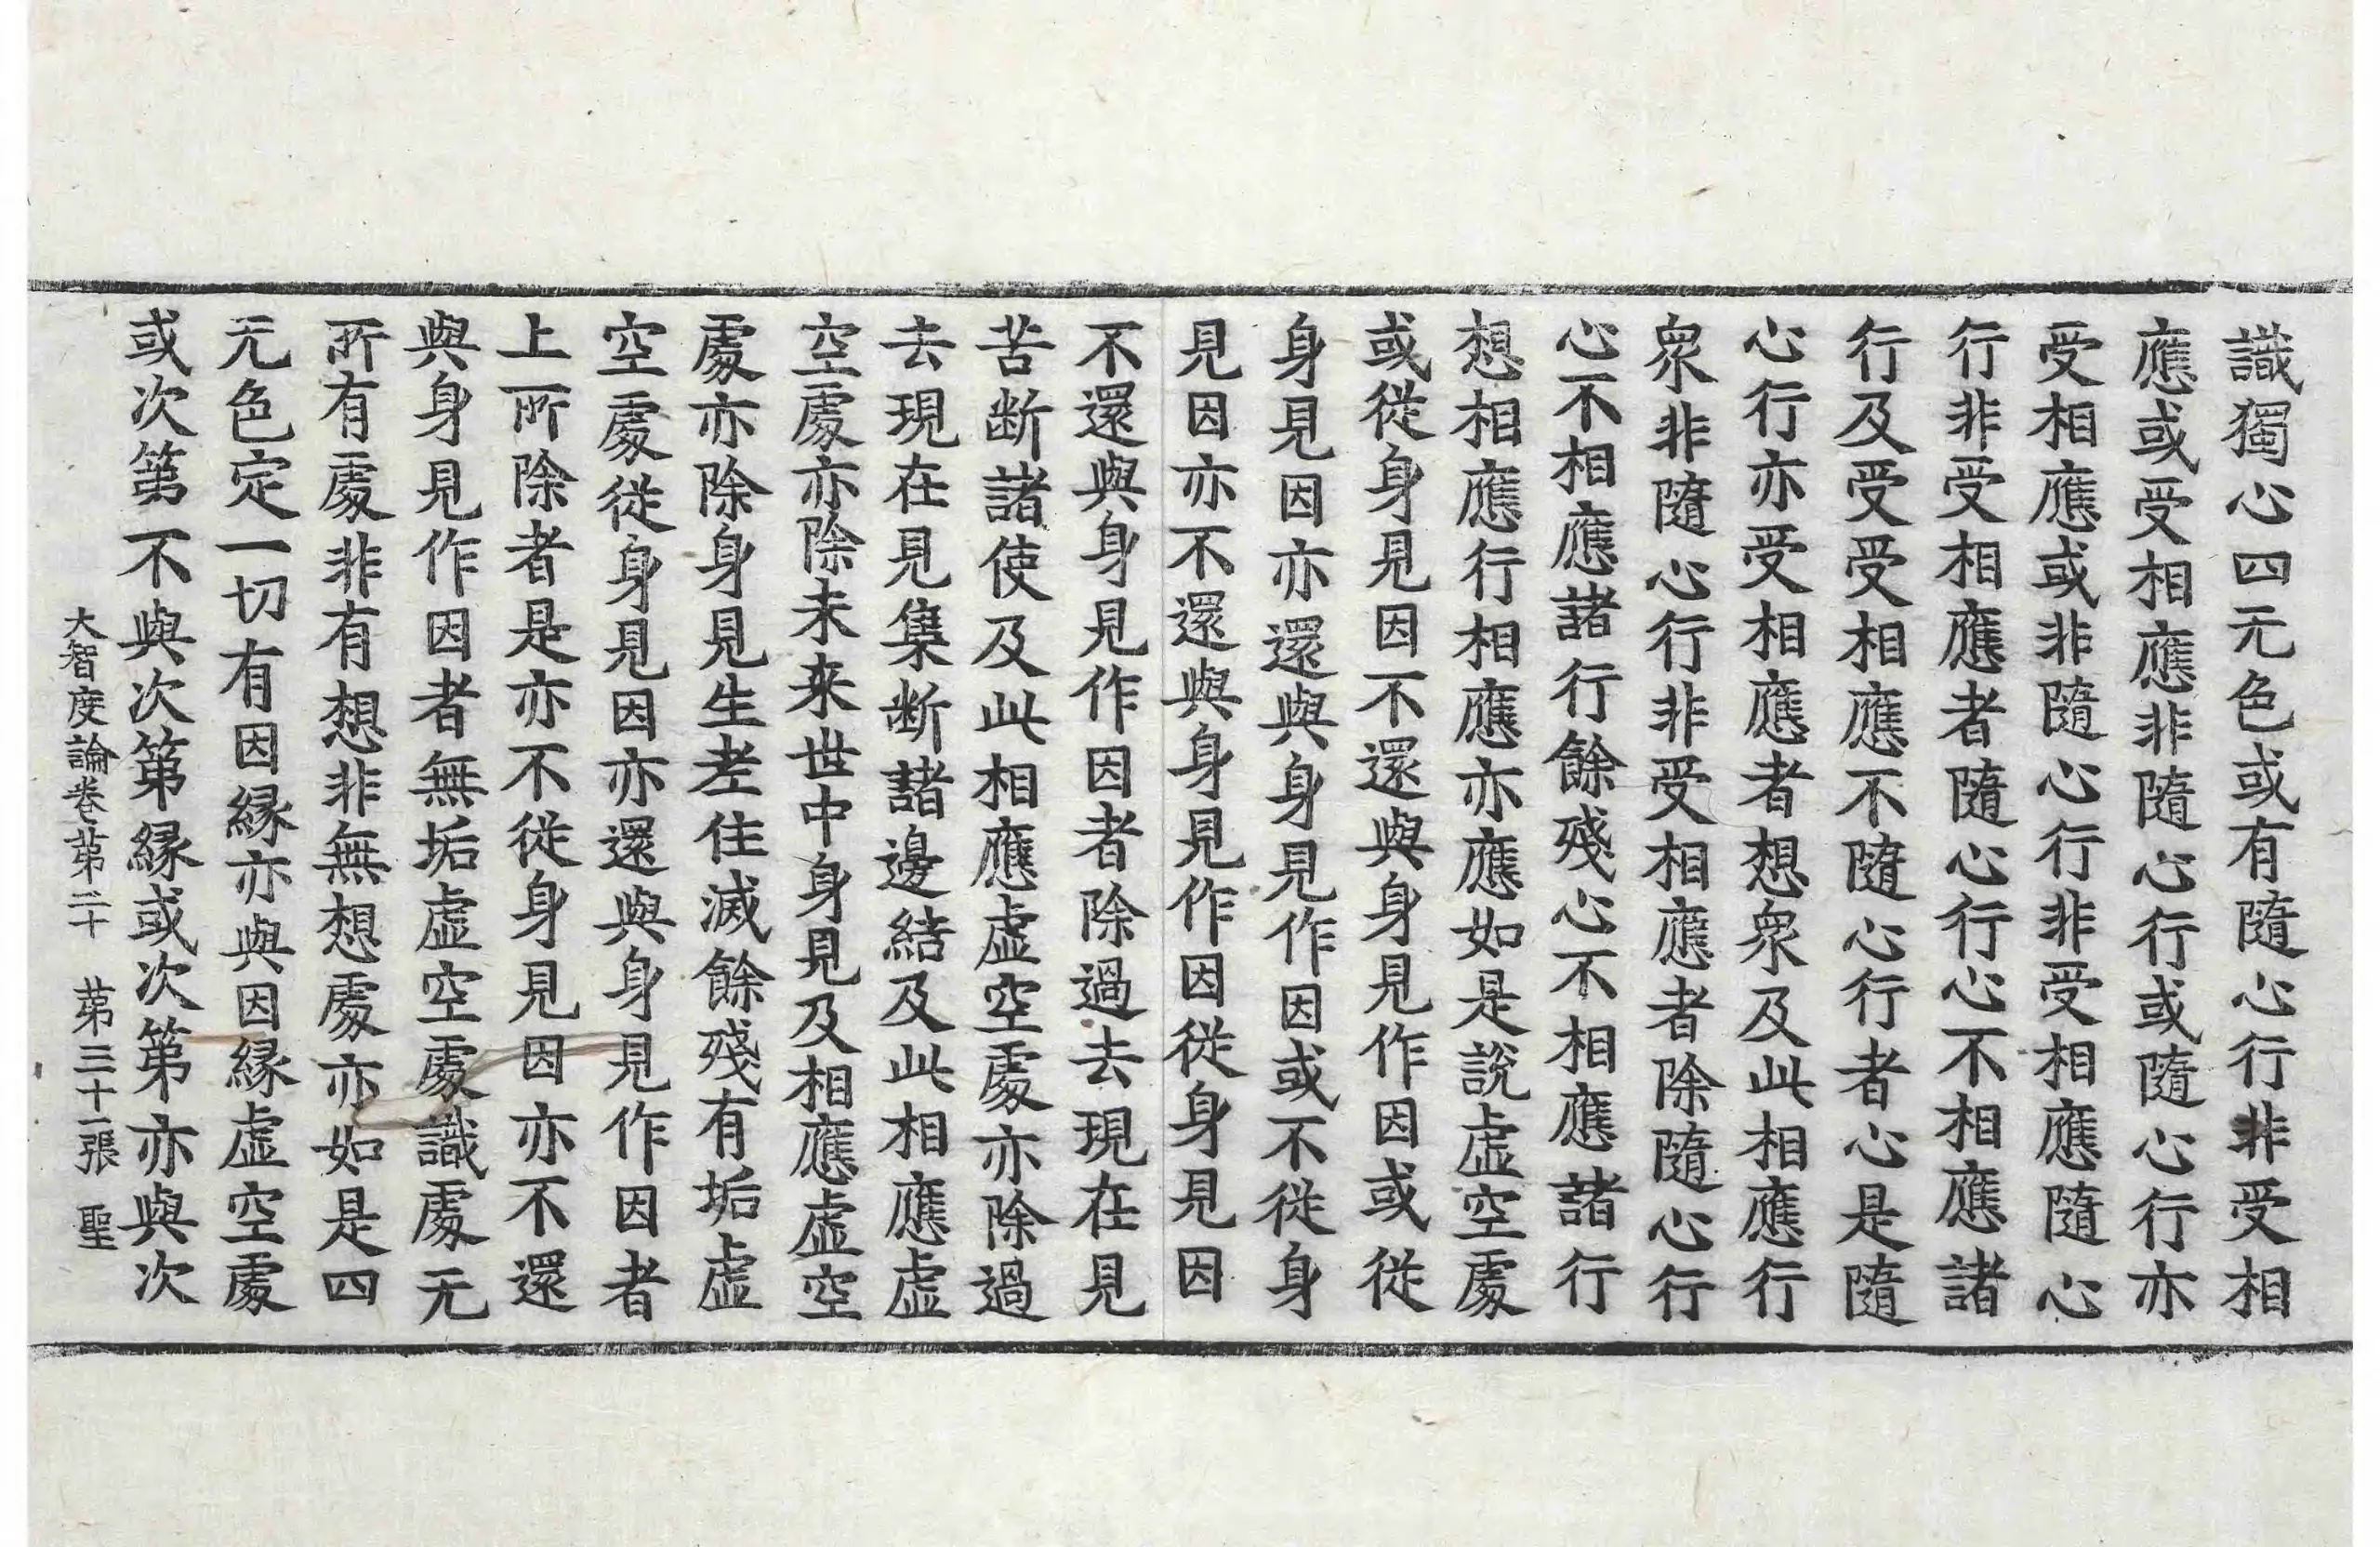 識獨心四无色或有隨心行非受相
應或受相應非隨心行或隨心行亦
受相應或非隨心行非受相應隨心
行非受相應者隨心行心不相應諸
行及受受相應不隨心行者心是隨
心行亦受相應者想衆及此相應行
衆非隨心行非受相應者除隨心行
心不相應諸行餘殘心不相應諸行
想相應行相應亦應如是說虛空處
或從身見因不還與身見作因或從
身見因亦還與身見作因或不從身
見因亦不還與身見作因從身見因
不還與身見作因者除過去現在見
苦断諸使及此相應虛空處亦除過
去現在見集断諸邊結及此相應虛
空處亦除未来世中身見及相應虛空
處亦除身見生老住滅餘殘有垢虛
空處從身見因亦還與身見作因者
上所除者是亦不從身見因亦不還
與身見作因者無垢虛空處識處无
所有處非有想非無想處亦如是四
无色定一切有因緣亦與因緣虛空處
或次第不與次第緣或次第亦與次
大智度論卷第二十　第三十一張　聖